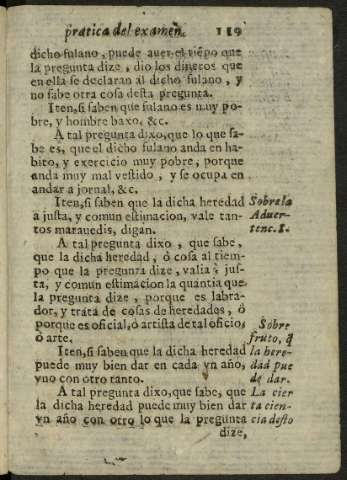 pratica del examen. 119
dicho fulano, puede auer el tiẽpo que
la pregunta dize, dio los dineros que
en ella se declaran al dicho fulano, y
no sabe otra cosa desta pregunta.
Iten, si saben que fulano es muy po-
bre, y hombre baxo, &c.
A tal pregunta dixo, que lo que sa-
be es, que el dicho fulano anda en ha-
bito, y exercicio muy pobre, porque
anda muy mal vestido, y se ocupa en
andar a jornal, &c.
Iten, si saben que la dicha heredad
a justa, y comun estimacion, vale tan-
tos marauedis, digan.
Sobre la
Aduer-
tenc. I.
A tal pregunta dixo, que sabe,
que la dicha heredad, ò cosa al tiem-
po que la pregunta dize, valia à jus-
ta, y comun estimacion la quantia que
la pregunta dize, porque es labra-
dor, y trata de cosas de heredades, ò
porque es oficial, ò artista de tal oficio,
ò arte.
Iten, si saben que la dicha heredad
puede muy bien dar en cada vn año,
vno con otro tanto.
Sobre
fruto, q̃
la here-
dad pue
de dar.
A tal pregunta dixo, que sabe, que
la dicha heredad puede muy bien dar
vn año con otro lo que la pregunta
La cier
ta cien-
cia desto
dize,